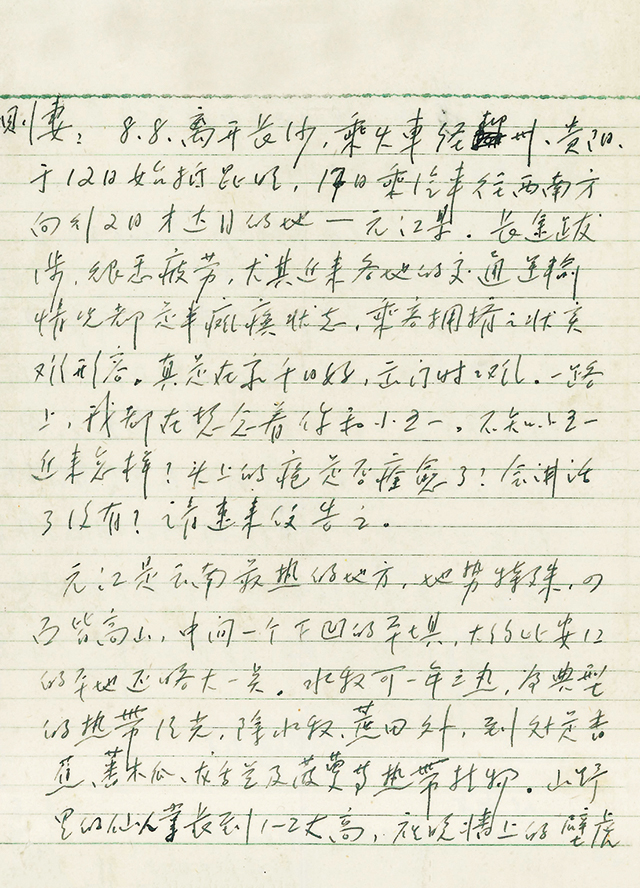 则妻：8.8.离开长沙，乘火車经州、貴阳、
于12日始抵昆明，17日乘汽車往西南方
向行2日才达目的地—元江县。长途跋
涉，很是疲劳，尤其近来各地的交通运输
情况都是半瘫痪状态，乘客拥挤之状实
难形容。真是在家千日好，出门时时难。一路
上，我都在想念着你和小五一。不知小五一
近来怎样？头上的疮是否痊愈了？会讲话
了没有？请速来信告之。
元江是云南最热的地方，地势特殊，四
面皆高山，中间一个下凹的平坝，大约比安江
的平地还略大一些。水稻可一年三熟，属典型
的热带风光，除水稻、蔗田外，到处是香
蕉、番木瓜、龙舌兰及菠萝等热带植物。山野
里的仙人掌长到1-2丈高，夜晚墙上的壁虎